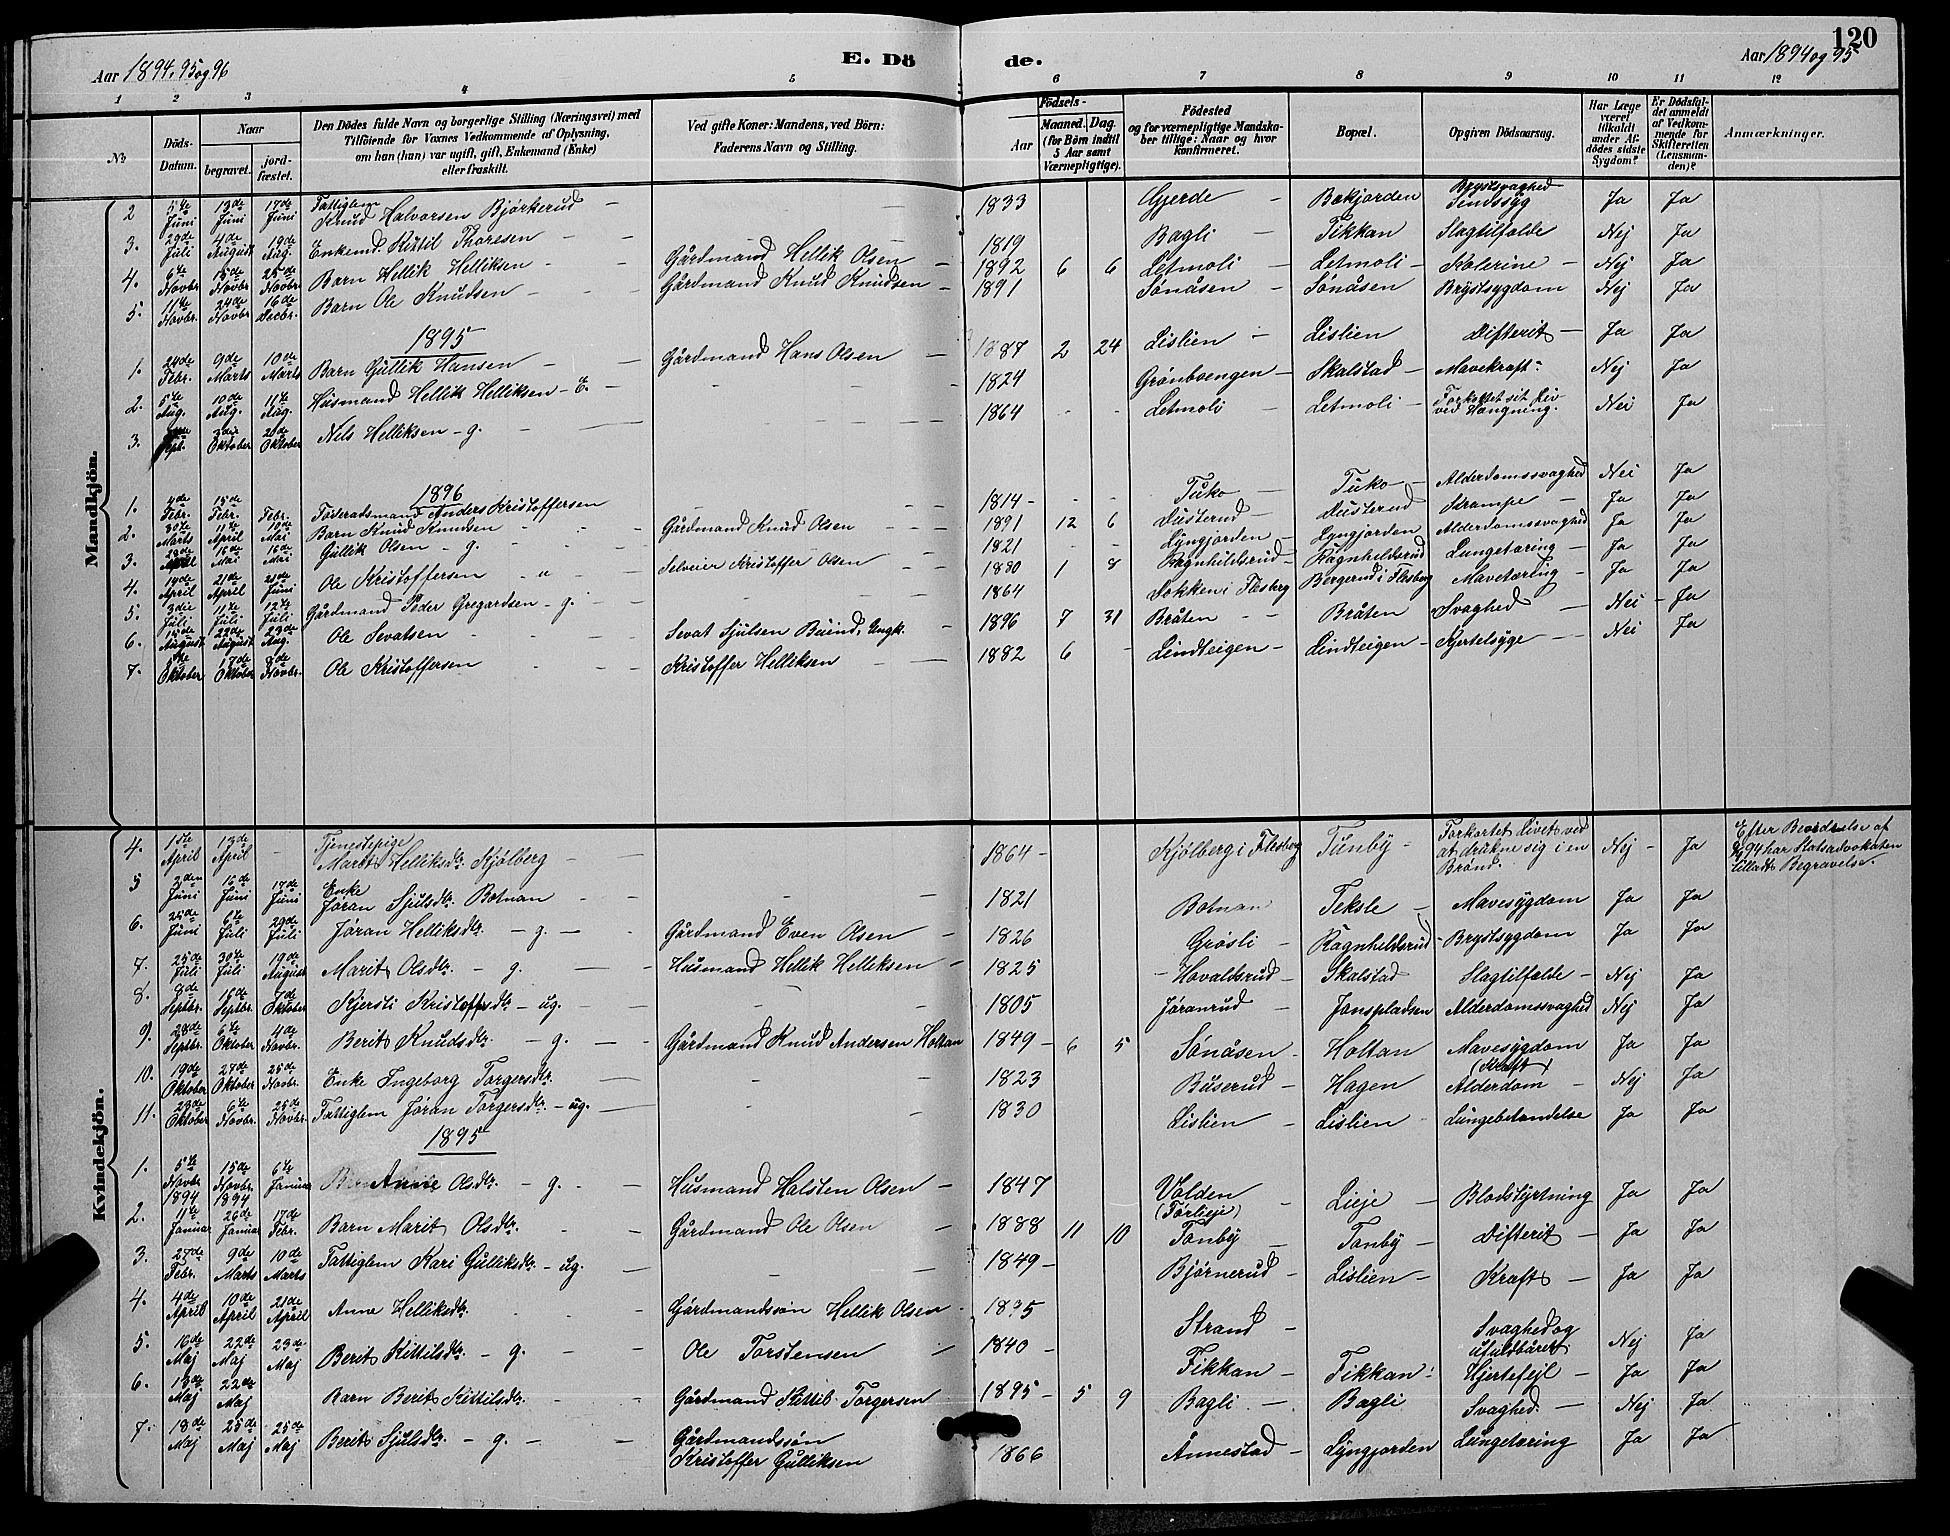 120
Aar 1894, 95 og 96
E. Dö
de.
Aar 1894 og 95
1 2 3 4 5 6 7 8 9 10 11 12
№
Döds-Datum.
Naar
begravet.
jordfæstet.
Den Dödes fulde Navn og borgerlige Stilling (Næringsvei) med
Tilföiende for Voxnes Vedkommende af Oplysning,
om han (hun) var ugift, gift, Enkemand (Enke)
eller fraskilt.
Ved gifte Koner: Mandens, ved Börn:
Faderens Navn og Stilling.
Födsels-
Aar
Maaned. Dag.
(for Börn indtil 5 Aar samt Værnepligtige).
Födested
og for værnepligtige Mandskaber tillige: Naar og hvor konfirmeret.
Bopæl.
Opgiven Dödsaarsag.
Har Læge været tilkaldt under Afdödes sidste Sygdom?
Er Dödsfaldet anmeldt af Vedkommende for Skifteretten (Lensmanden)?
Anmærkninger.
Mandkjön.
2 5te Juni 13de Juni 17de Juni Fattiglem Knud Halvorsen Bjørkerud - - 1833 Gjerde - Bakjorden Brystsvaghed Sindssyg Ja Ja
3. 29de Juli 4de August 19de Aug. Enkemd. Kittil Thoresen - - 1819 Bagli - Fikkan Slagtilfælde Nej Ja
4. 6te Novbr 15de Novbr 25de Novbr. Barn Hellik Helliksen - - Gårdmand Hellik Olsen - 1892 6 6 Letmoli - Letmoli - Kolerine - Nej Ja
5. 11te Novbr. 24de Novbr 16de Decbr. Barn Ole Knudsen - - Gårdmand Knud Knudsen - 1891 Sønåsen - Sønåsen Brystsygdom Nej Ja
1895
1. 24de Febr. 9de Marts 10de Marts Barn Gullik Hansen - - Gårdmand Hans Olsen - 1887 2 24 Lislien - Lislien Difterit - Ja Ja
2. 5te Aug. 10de Aug. 11te Aug. Husmand Hellik Helliksen - E. - - - 1824 Grønvoengen - Skalstad - Mavekraft - Nej Ja
3. Sept. 3die Oktober 20de Oktober Nils Helliksen - g. - 1864 - - Letmoli - Letmoli - Forkortet sit Liv ved Hængning. Nei Ja
1896
1. 4de Febr. 15de Febr. Febr. Føderaadsmand Anders Kristoffersen 1814 - - - Tuko - Tuko - Alderdomssvaghed Nei Ja
2. 30te Marts 11te April 10de Mai Barn Knud Knudsen - - Gårdmand Knud Olsen - - 1891 12 6 Dusterud - Dusterud Krampe - Ja Ja
3. 28de April 16de Mai 16de Mai Gullik Olsen - g. - - 1821 - - Lyngjorden - Lyngjorden - Alderdomssvaghed Ja Ja
4. 14de April 21de April 21de Juni Ole Kristoffersen - - Selveier Kristoffer Olsen - - 1880 1 8 Ragnhildsrud - Ragnhildsrud Lungetæring - Ja Ja
5. 3die Juli 11te Juli 12te Juli Gårdmand Peder Gregardsen - g. - - 1864 Dokken i Flesberg Bergerud i Flesberg Mavetæring - Ja Ja
6. 15de August 22de August 23de Aug. Ole Sevatsen - - Sevat Sjulsen Buind, Ungk. - 1896 7 31 Bråten - - Bråten Svaghed - Nei - Ja
7. Oktober 17de Oktober 8de Novbr. Ole Kristoffersen - - Kristoffer Helliksen - - 1882 6 - Lindteigen - Lindteigen - Kjertelsyge - Nei Ja
Kvindekjön.
4. 1ste April 13de April - Tjenestepige Marit Helliksdtr. Kjølberg - - 1864 - Kjølberg i Flesberg Tunby - Forkortet Livet ved at drukne sig i en Brønd. Nej - Ja Efter Bevidnelse af 94 har Statsadvokaten tilladt Begravelse.
5 2den Juni 16de Juni 17de Juni Enke Jøran Sjulsdtr. Botnan - - 1821 Botnan Teksle - Mavesygdom Ja Ja
6. 25de Juni 6te Juli 29de Juli Jøran Helliksdtr. - g. - - Gårdmand Even Olsen - 1826 Grøsli - Ragnhildsrud - Brystsygdom Ja Ja
7. 25de Juli 30te Juli 19de August Marit Olsdtr. - g. - - Husmand Hellik Helliksen - 1825 - Hovaldsrud - Skalstad Slagtilfælde - Nej Ja
8. 8de Septbr. 16de Septbr. 7de Oktober Kjersti Kristoffsdtr - ug. - - - 1805 Jøranrud - Jonspladsen Alderdomssvaghed Nej Ja
9. 28de Septbr. 6te Oktober 4de Novbr. Berit Knudsdtr. - g. - - Gårdmand Knud Andersen Holtan 1849 - 6 5 Sønåsen - Holtan Mavesygdom (Kraft) Ja Ja
10. 19de Oktober 27de Oktober 25de Novbr. Enke Ingeborg Torgersdtr. - - 1823 Buserud - Hagen Alderdom - Nej Ja
11. 23de Oktober 6te Novbr. 25de Novbr. Fattiglem Jøran Torgersdtr. - ug. - - - 1830 Lislien - Lislien - Lungebetændelse Ja Ja
1895
1. 5te Novbr 1894 15de Novbr. 1894 6te Januar Anne Olsdtr. - g. - - Husmand Halsten Olsen - 1847 Volden (Førlieje) - Lieje - Blodstyrtning Ja Ja
2. 11te Januar 26de Januar 17de Febr. Barn Marit Olsdtr. - - Gårdmand Ole Olsen - 1888 11 10 Tonby - Tonby - Difterit - Ja Ja
3. 27de Febr. 9de Marts 10de Marts Fattiglem Kari Gulliksdtr. - ug. - - - 1849 - Bjørnerud - Lislien - Kraft - Ja Ja
4. 4de April 10de April 21de April Anne Helliksdtr. - - Gårdmandssøn Hellik Olsen - 1895 Strand - Svaghed og ufuldbåret Nej Ja
5. 16de Maj 22de Maj 23de Maj Berit Kittilsdtr. - g. - - Ole Torstensen - 1840 - Fikkan - Fikkan - Hjertefejl - Ja Ja
6. 13de Maj 22de Maj Barn Berit Kittilsdtr. - - Gårdmand Kittil Torgersen 1895 - 5 9 Bagli - - Bagli Svaghed - Nej Ja
7. 18de Maj 25de Maj 25de Maj Berit Sjulsdtr. - g. - - Gårdmandssøn Kristoffer Gulliksen 1866 Ånnestad - Lyngjorden Lungetæring Ja Ja